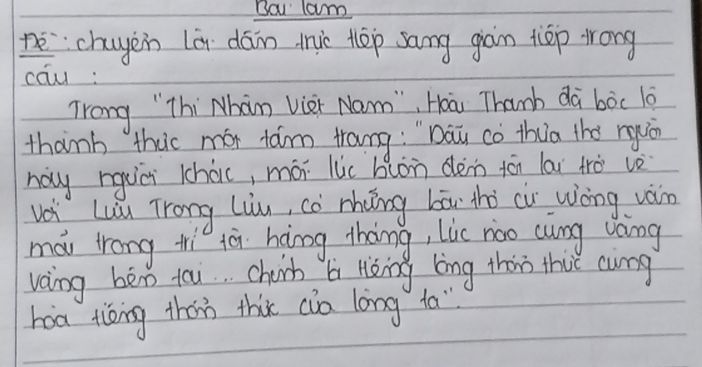 Bài làm
Đề: chuyển lời dẫn trực tiếp sang gián tiếp trong
câu :
Trong "Thi Nhân Việt Nam", Hoài Thanh đã bộc lộ
thành thực một tâm trạng: "Dẫu có thua thơ người
này người khác, mỗi lúc buồn đến tôi lại trở về
với Lưu Trọng Lưu, có những bài thơ cứ vương vấn
mãi trong trí tôi hàng tháng, lúc nào cũng văng
vẳng bên tai... Chính là tiếng lòng thổn thức cùng
hòa tiếng thổn thức của lòng ta".